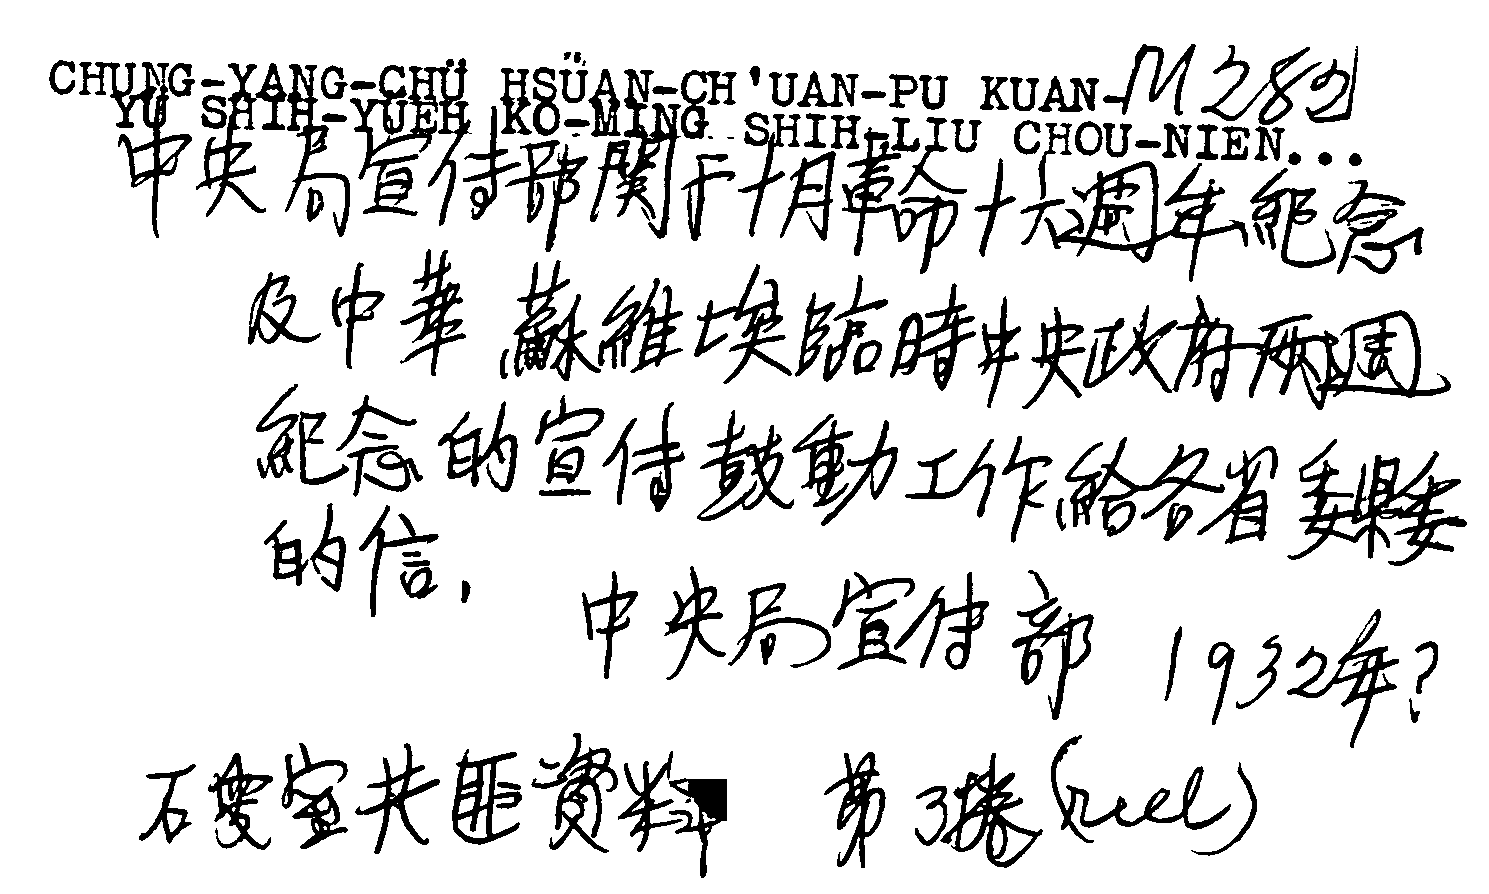 CHUNG-YANG-CHÜ HSÜAN-CH'UAN-PU KUAN- M 282
YÜ SHIH-YÜEH KO-MING SHIH-LIU CHOU-NIEN...
中央局宣传部関于十月革命十六週年紀念
及中華蘇維埃臨時中央政府两週
紀念的宣传鼓動工作給各省委縣委
的信.
中央局宣传部 1932年?
石叟室共匪資料 第3捲(reel)